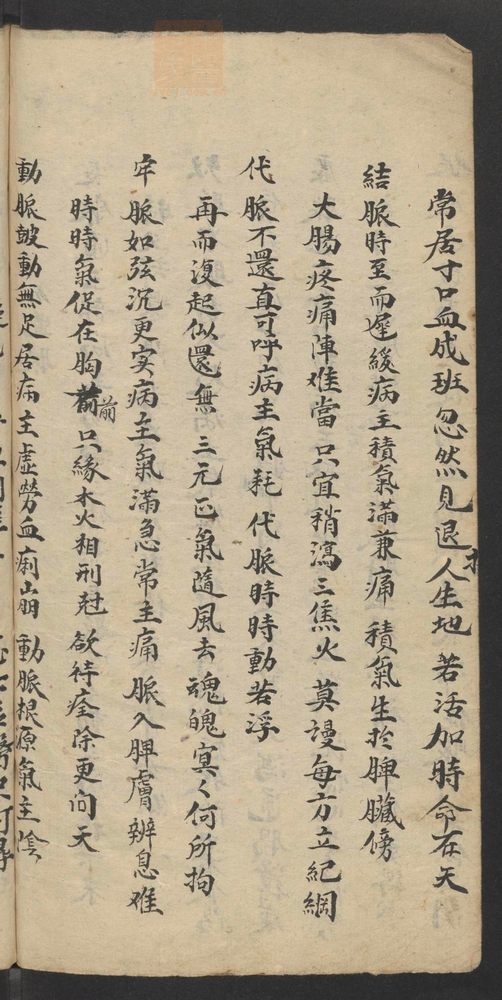 常居寸口血成班忽然見退人生地若活加時命在天
結脈時至而遲緩病主積氣滿兼痛積氣生於脾臟傍
大腸疼痛陣难當只宜稍瀉三焦火莫謾每方立紀綱
代脈不還真可呼病主氣耗代脈時時動若浮
再而復起似還無三元正氣隨風去魂魄冥〻何所拘
牢脈如弦沉更实病主氣滿急常主痛脈入脾膚辨息难
時時氣促在胸前前只緣木火相刑尅欲待痊除更问天
動脈皷動無足居病主虛勞血痢崩動脈根原氣主陰